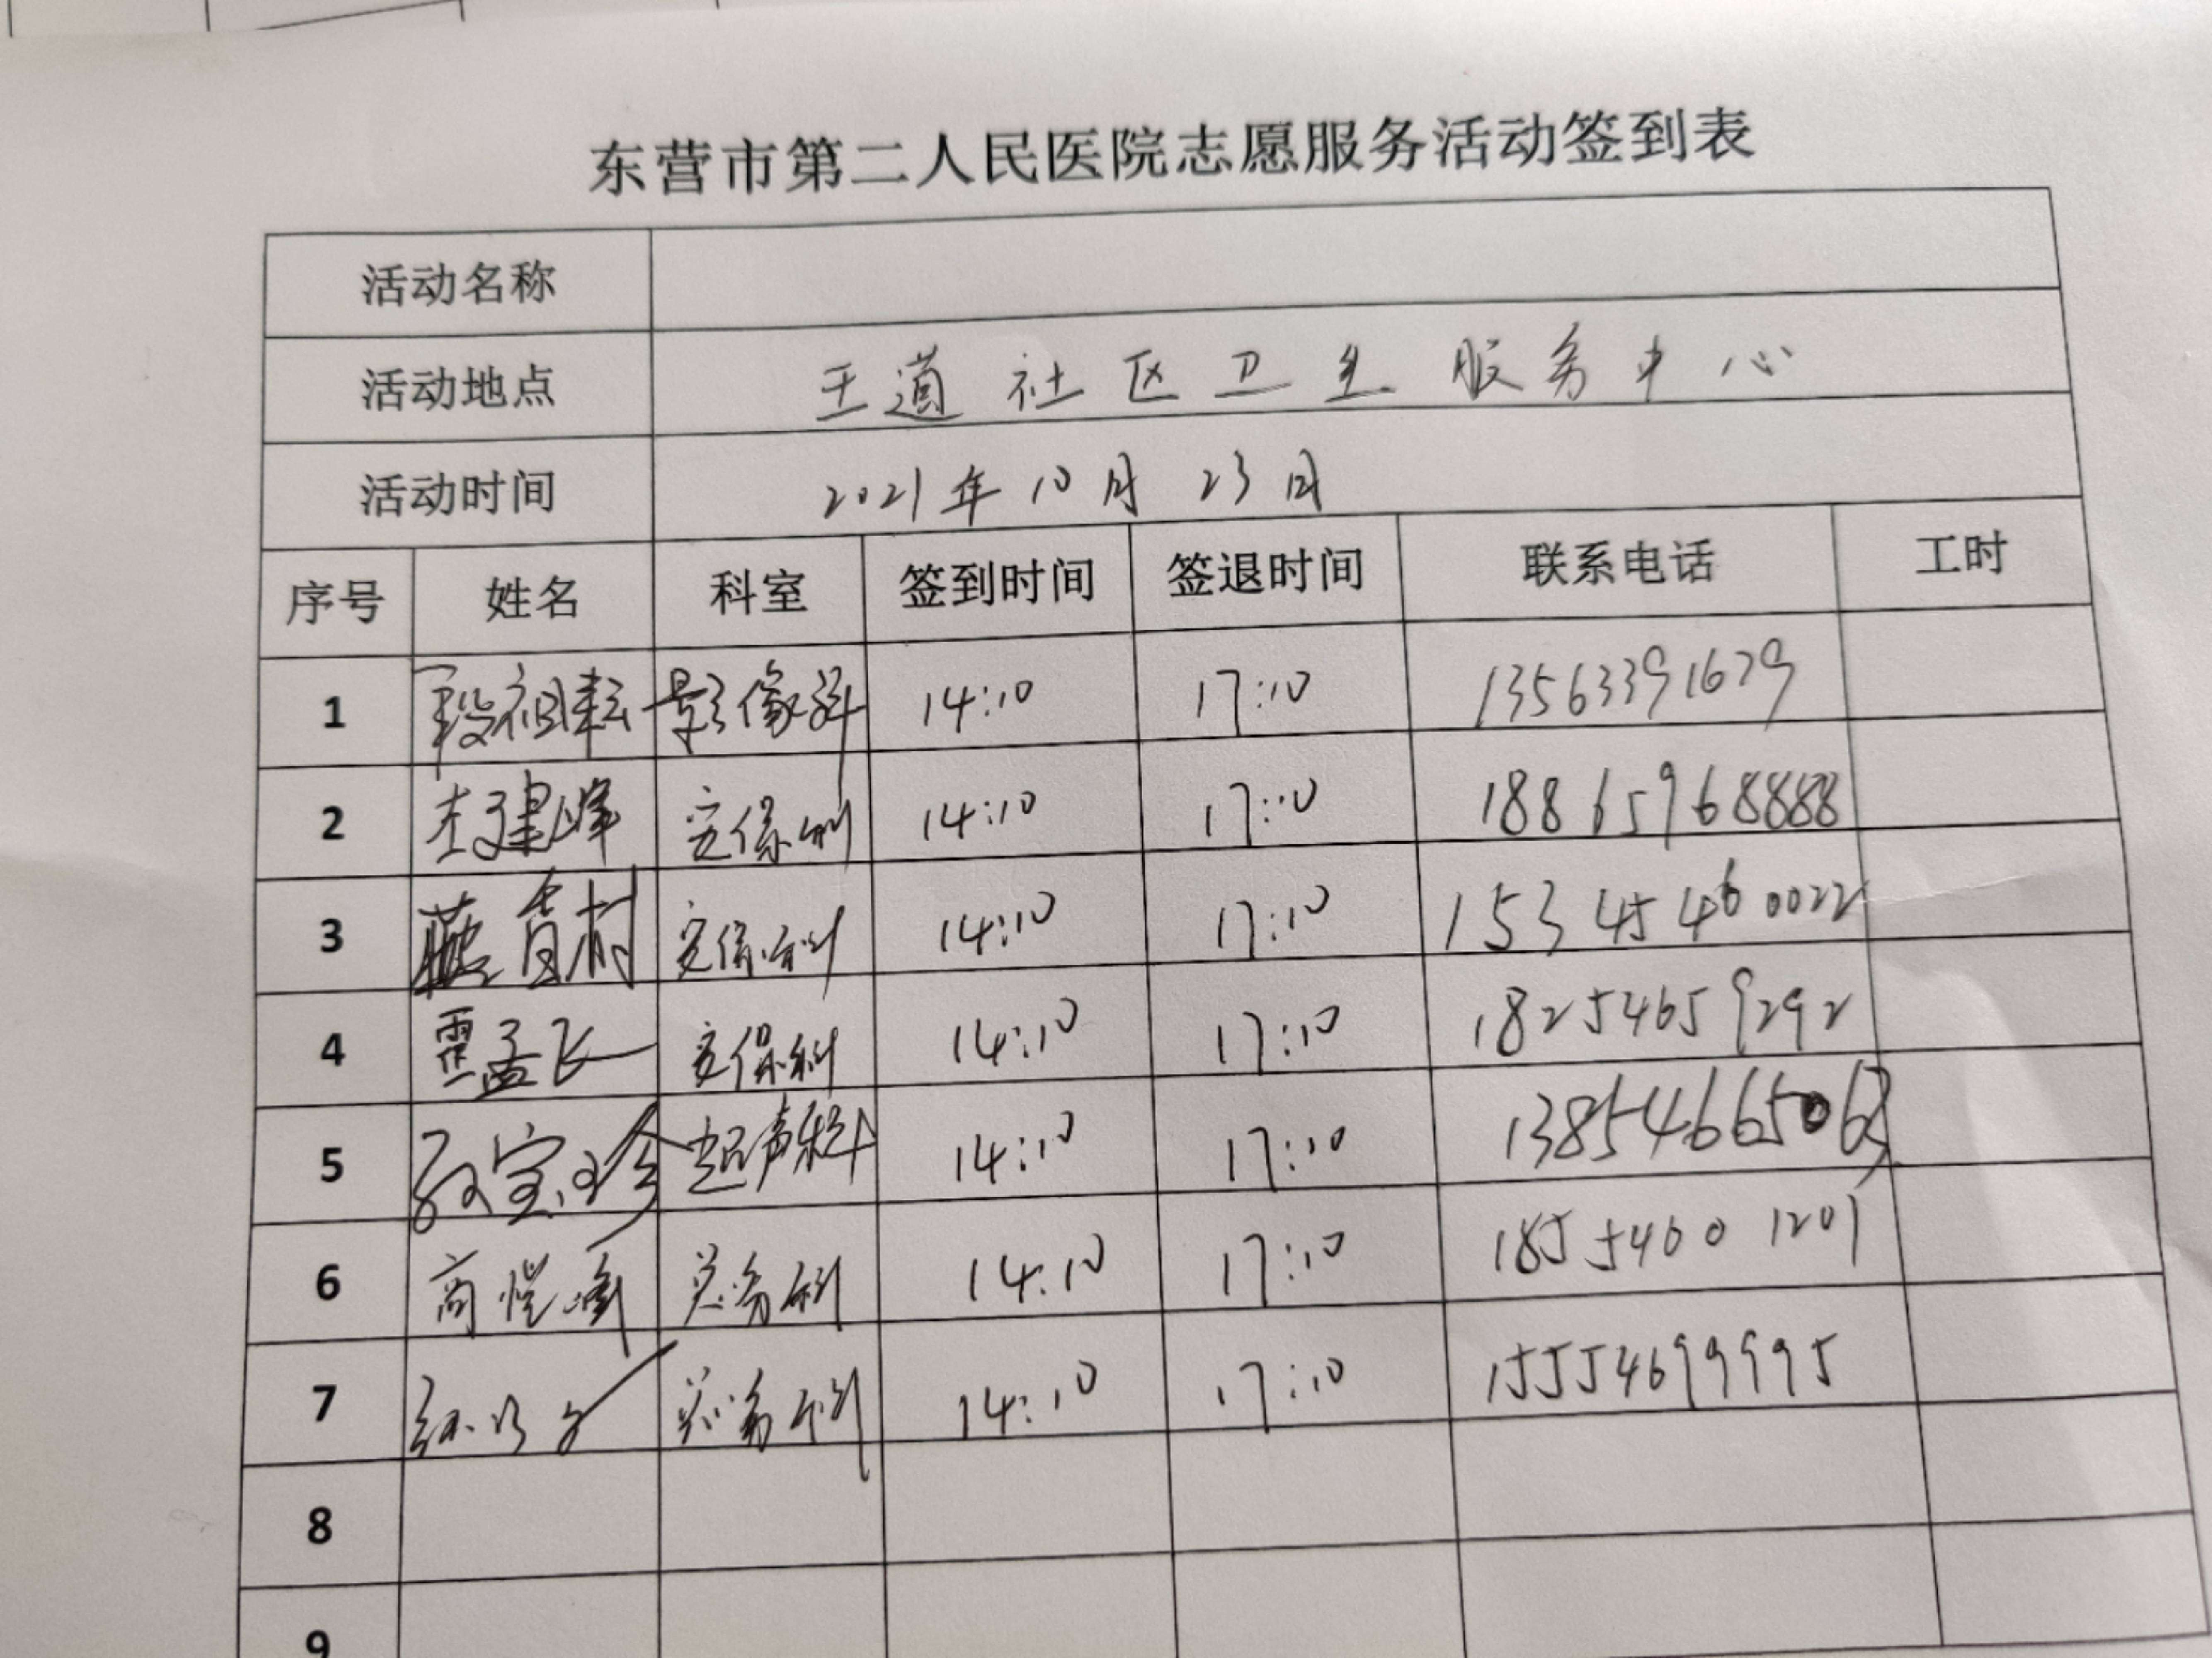 东营市第二人民医院志愿服务活动签到表
活动名称
活动地点 王道社区卫生服务中心
活动时间 2021年10月23日
序号 姓名 科室 签到时间 签退时间 联系电话 工时
1 段祖耘 影像科 14:10 17:10 13563391679
2 李建峰 安保科 14:10 17:10 18865968888
3 村 安保科 14:10 17:10 15345460022
4 霍孟飞 安保科 14:10 17:10 18254659292
5 孙宝珍 超声科 14:10 17:10 13854665063
6 商恺 总务科 14:10 17:10 18554601201
7 总务科 14:10 17:10 15554699995
8
9